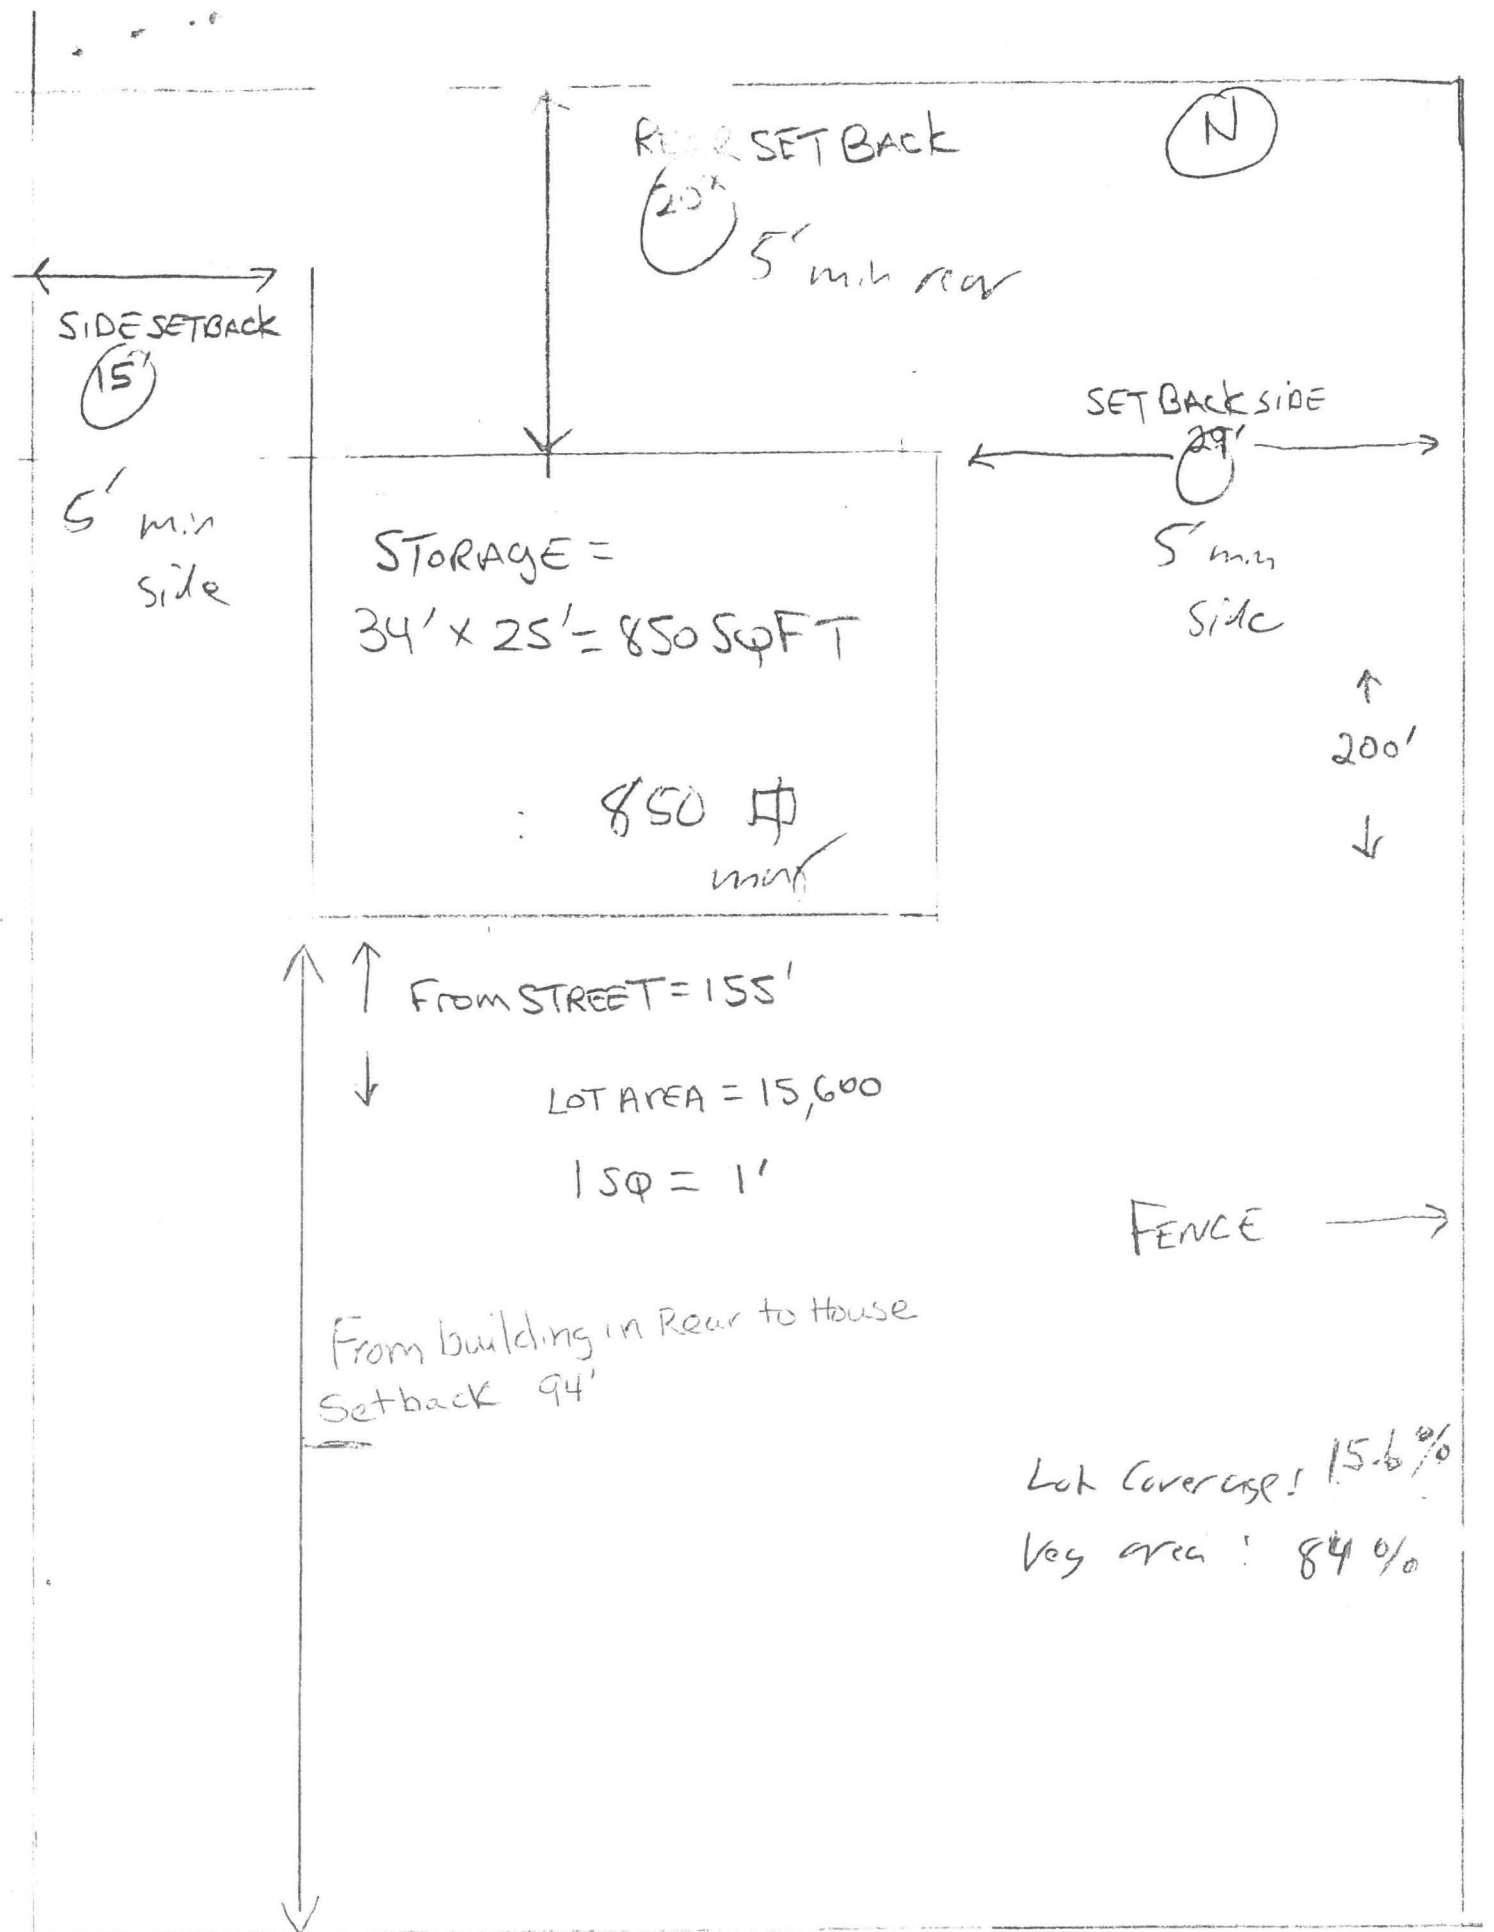 N
SET BACK
20'
5' min rear
SIDE SETBACK
15'
SET BACK SIDE
29'
5' min
side
5' min
side
STORAGE =
34' x 25' = 850 SQFT
200'
850
From STREET = 155'
LOT ArEA = 15,600
1 SQ = 1'
FENCE
From building in Rear to House
Setback 94'
Lot Coverage: 15.6%
Veg area: 84%